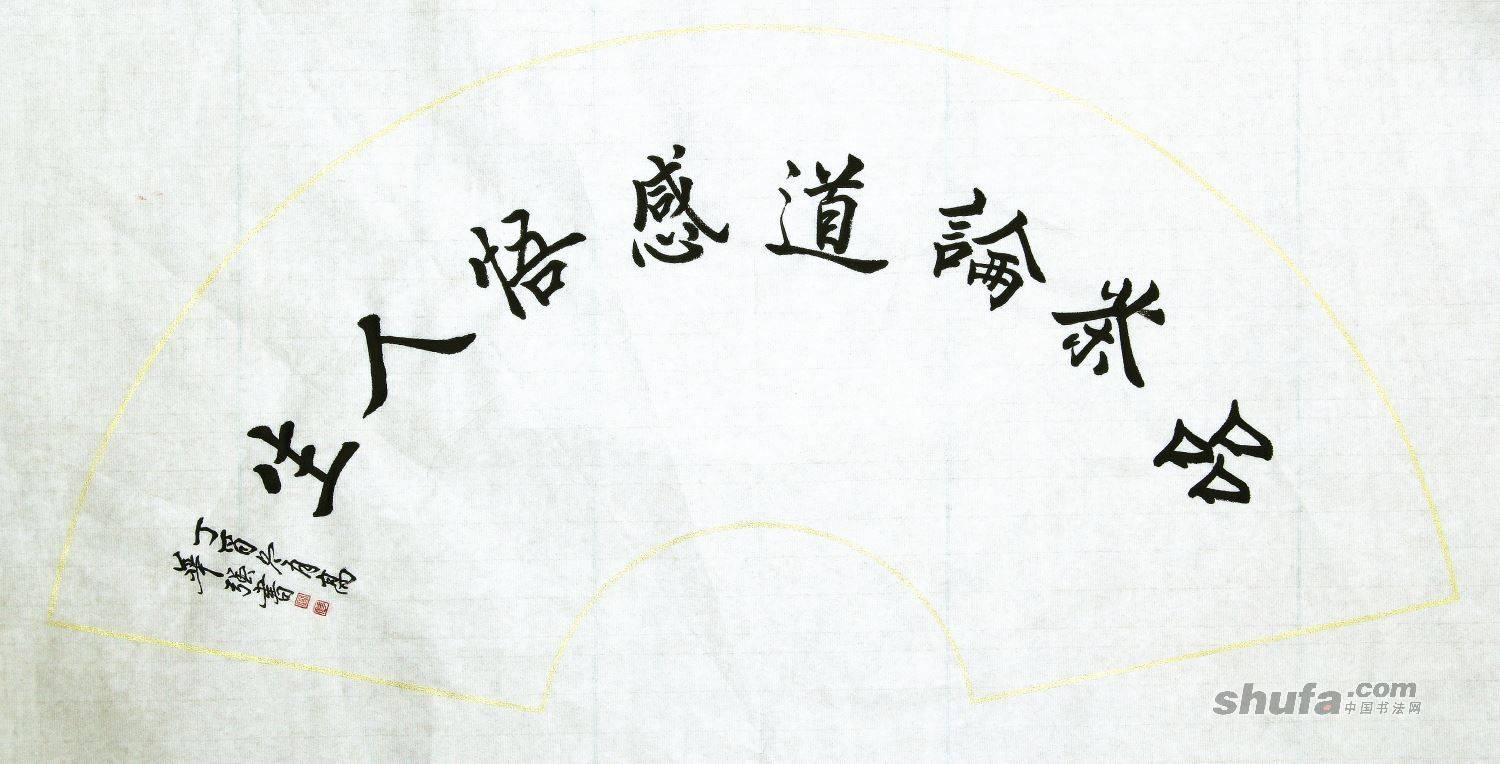 品茶論道感悟人生
丁酉冬月高
華張書
shufa.com
中国书法网